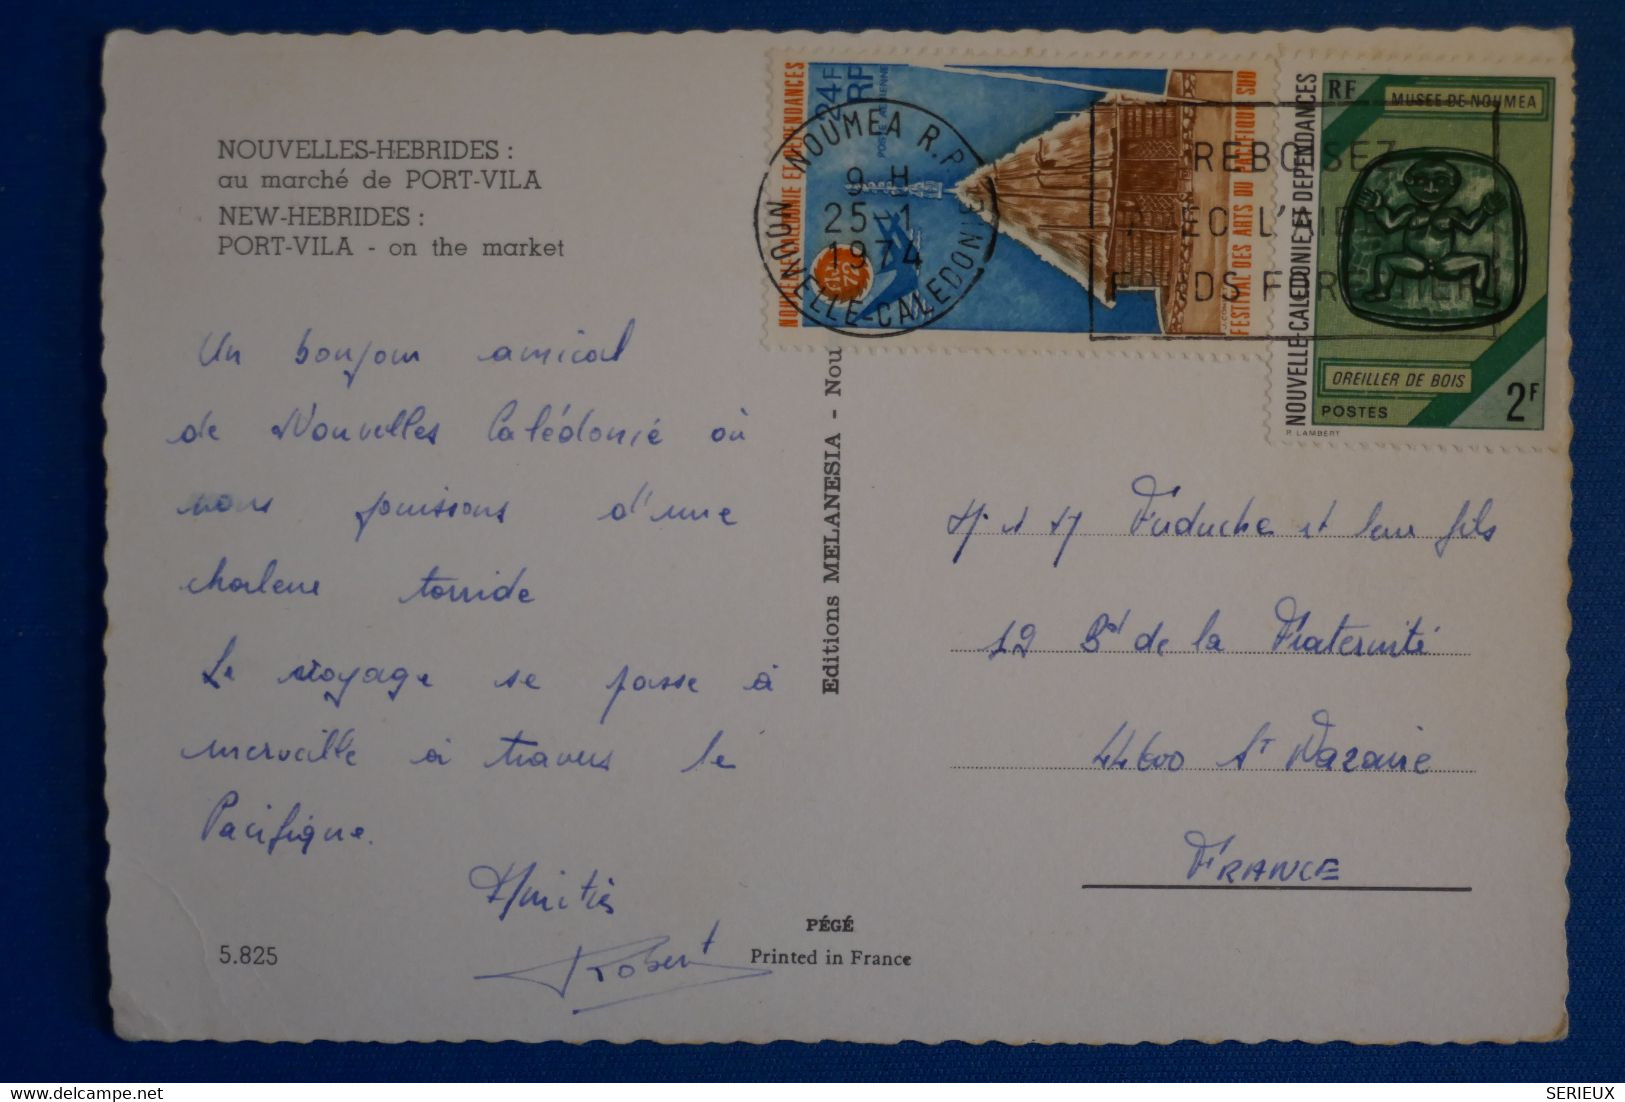 NOUVELLES-HEBRIDES :
au marché de PORT-VILA
NEW-HEBRIDES :
PORT-VILA - on the market
Un bonjour amical
de Nouvelles Calédonie où
nous jouissons d'une
chaleur torride
Le voyage se passe à
merveille à travers le
Pacifique.
Amitiés
Robert
5.825
PÉGÉ
Printed in France
Editions MELANESIA - Nou
NOUVELLE-CALEDONIE ET DEPENDANCES
24F
RF
POSTE AERIENNE
FESTIVAL DES ARTS DU PACIFIQUE SUD
NOUMEA R.P.
9 H
25-1
1974
NOUVELLE-CALEDONIE
REBOISEZ
AVEC L'AIDE
FONDS FORESTIER
RF
MUSEE DE NOUMEA
NOUVELLE-CALEDONIE ET DEPENDANCES
OREILLER DE BOIS
POSTES
2F
P. LAMBERT
M. et M et leur fils
12 Bd de la Fraternité
44600 St Nazaire
FRANCE
SERIEUX